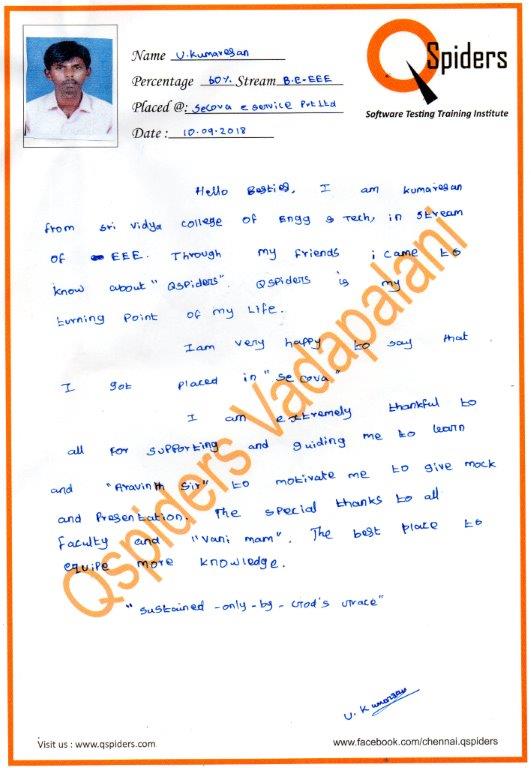 Name V. Kumaresan
Percentage 60% Stream B.E-EEE
Placed @: Secova e Service Pvt Ltd
Date : 10.09.2018
QSpiders
Software Testing Training Institute
Hello Besties, I am Kumaresan
from Sri Vidya College of Engg & Tech, in Stream
of EEE. Through my friends i came to
know about "QSpiders". QSpiders is my
turning point of my life.
I am very happy to say that
I got placed in "Secova"
I am extremely thankful to
all for supporting and guiding me to learn
and "Aravinth Sir" to motivate me to give mock
and Presentation. The special thanks to all
faculty and "Vani mam". The best place to
equipe more knowledge.
"Sustained -only-by- God's Grace"
V. Kumaresan
Qspiders Vadapalani
Visit us : www.qspiders.com
www.facebook.com/chennai.qspiders